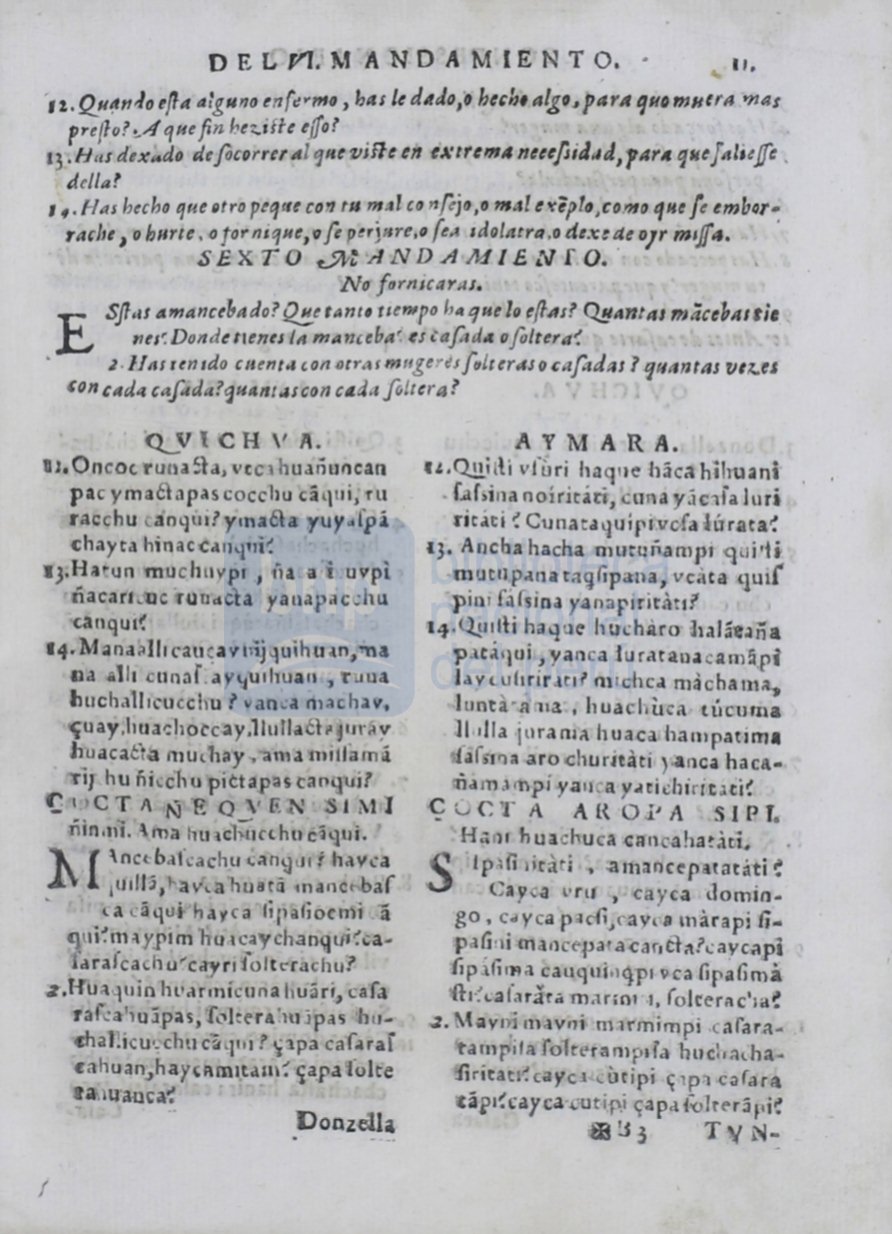 DEL VI. MANDAMIENTO. 11.
12. Quando esta alguno enfermo, has le dado, o hecho algo, para que muera mas
presto? A que fin heziste esso?
13. Has dexado de socorrer al que viste en extrema necessidad, para que saliesse
della?
14. Has hecho que otro peque con tu mal consejo, o mal exẽplo, como que se embor-
rache, o hurte, o fornique, o se perjure, o sea idolatra, o dexe de oyr missa.
SEXTO MANDAMIENTO.
No fornicaras.
ESstas amancebado? Que tanto tiempo ha que lo estas? Quantas mãcebas tie
nes? Donde tienes la manceba? es casada o soltera?
2. Has tenido cuenta con otras mugeres solteras o casadas? quantas vezes
con cada casada? quantas con cada soltera?
QVICHVA.
12. Oncoc runacta, huañuncan
pac ymactapas cocchu cãqui, ru
racchu canqui? ymacta yuyaspã
chayta hinac canqui?
13. Hatun muchuypi, ña
ñacaric runacta yanapacchu
canqui?
14. Mana alli
na alli runa
huchallicucchu? yanca machay,
çuay, huachoccay, llullacta juray
huacacta muchay, ama missamã
rij ñicchu pictapas canqui?
ÇOCTA ÑEQVEN SIMI
ñinmi. Ama huachucchu cãqui.
MAncebascachu canqui? hayca
quillã, hayca huatã mancebas
ca cãqui hayca sipasioc mi cã
qui? maypim huacaychanqui? ca-
sarascachu? cayri solterachu?
2. Huaquin huarmicunahuãri, casa
rascahuãpas, solterahuãpas hu-
challicucchu cãqui? çapa casaras
cahuan, haycamitam? çapa solte
rahuanca?
Donzella
AYMARA.
12. Quisti vsuri haque hãca hihuani
sassina cuna yãcasa luri
ritati? Cunataquipi vcsa lúrata?
13. Ancha hacha mutuñampi quisti
mutupana vcàta quis
pini sassina yanapiritàti?
14. Quisti haque hucharo halãtaña
patàqui, yanca luratanacamãpi
michca màchama,
luntàtama, huachùca cúcuma
llulla jurama huaca hampatima
sassina aro churitàti yanca haca-
ñamampi yanca yatichiritati?
ÇOCTA AROPA SIPI.
Hani huachuca cancahatàti.
SIpasinitàti, amancepatatáti?
Cayca vru, cayca domin-
go, cayca pacsi, cayca màrapi si-
pasini mancepata cancta? caycapi
sipasima cauquinqpi vca sipasimã
sti? casaràta solteracha?
2. Mayni mayni marmimpi casara-
tampisa solterampisa huchacha-
siritati? cayca cùtipi çapa casara
tãpi? cayca cutipi çapa solterãpi?
✠ B3 TVN-